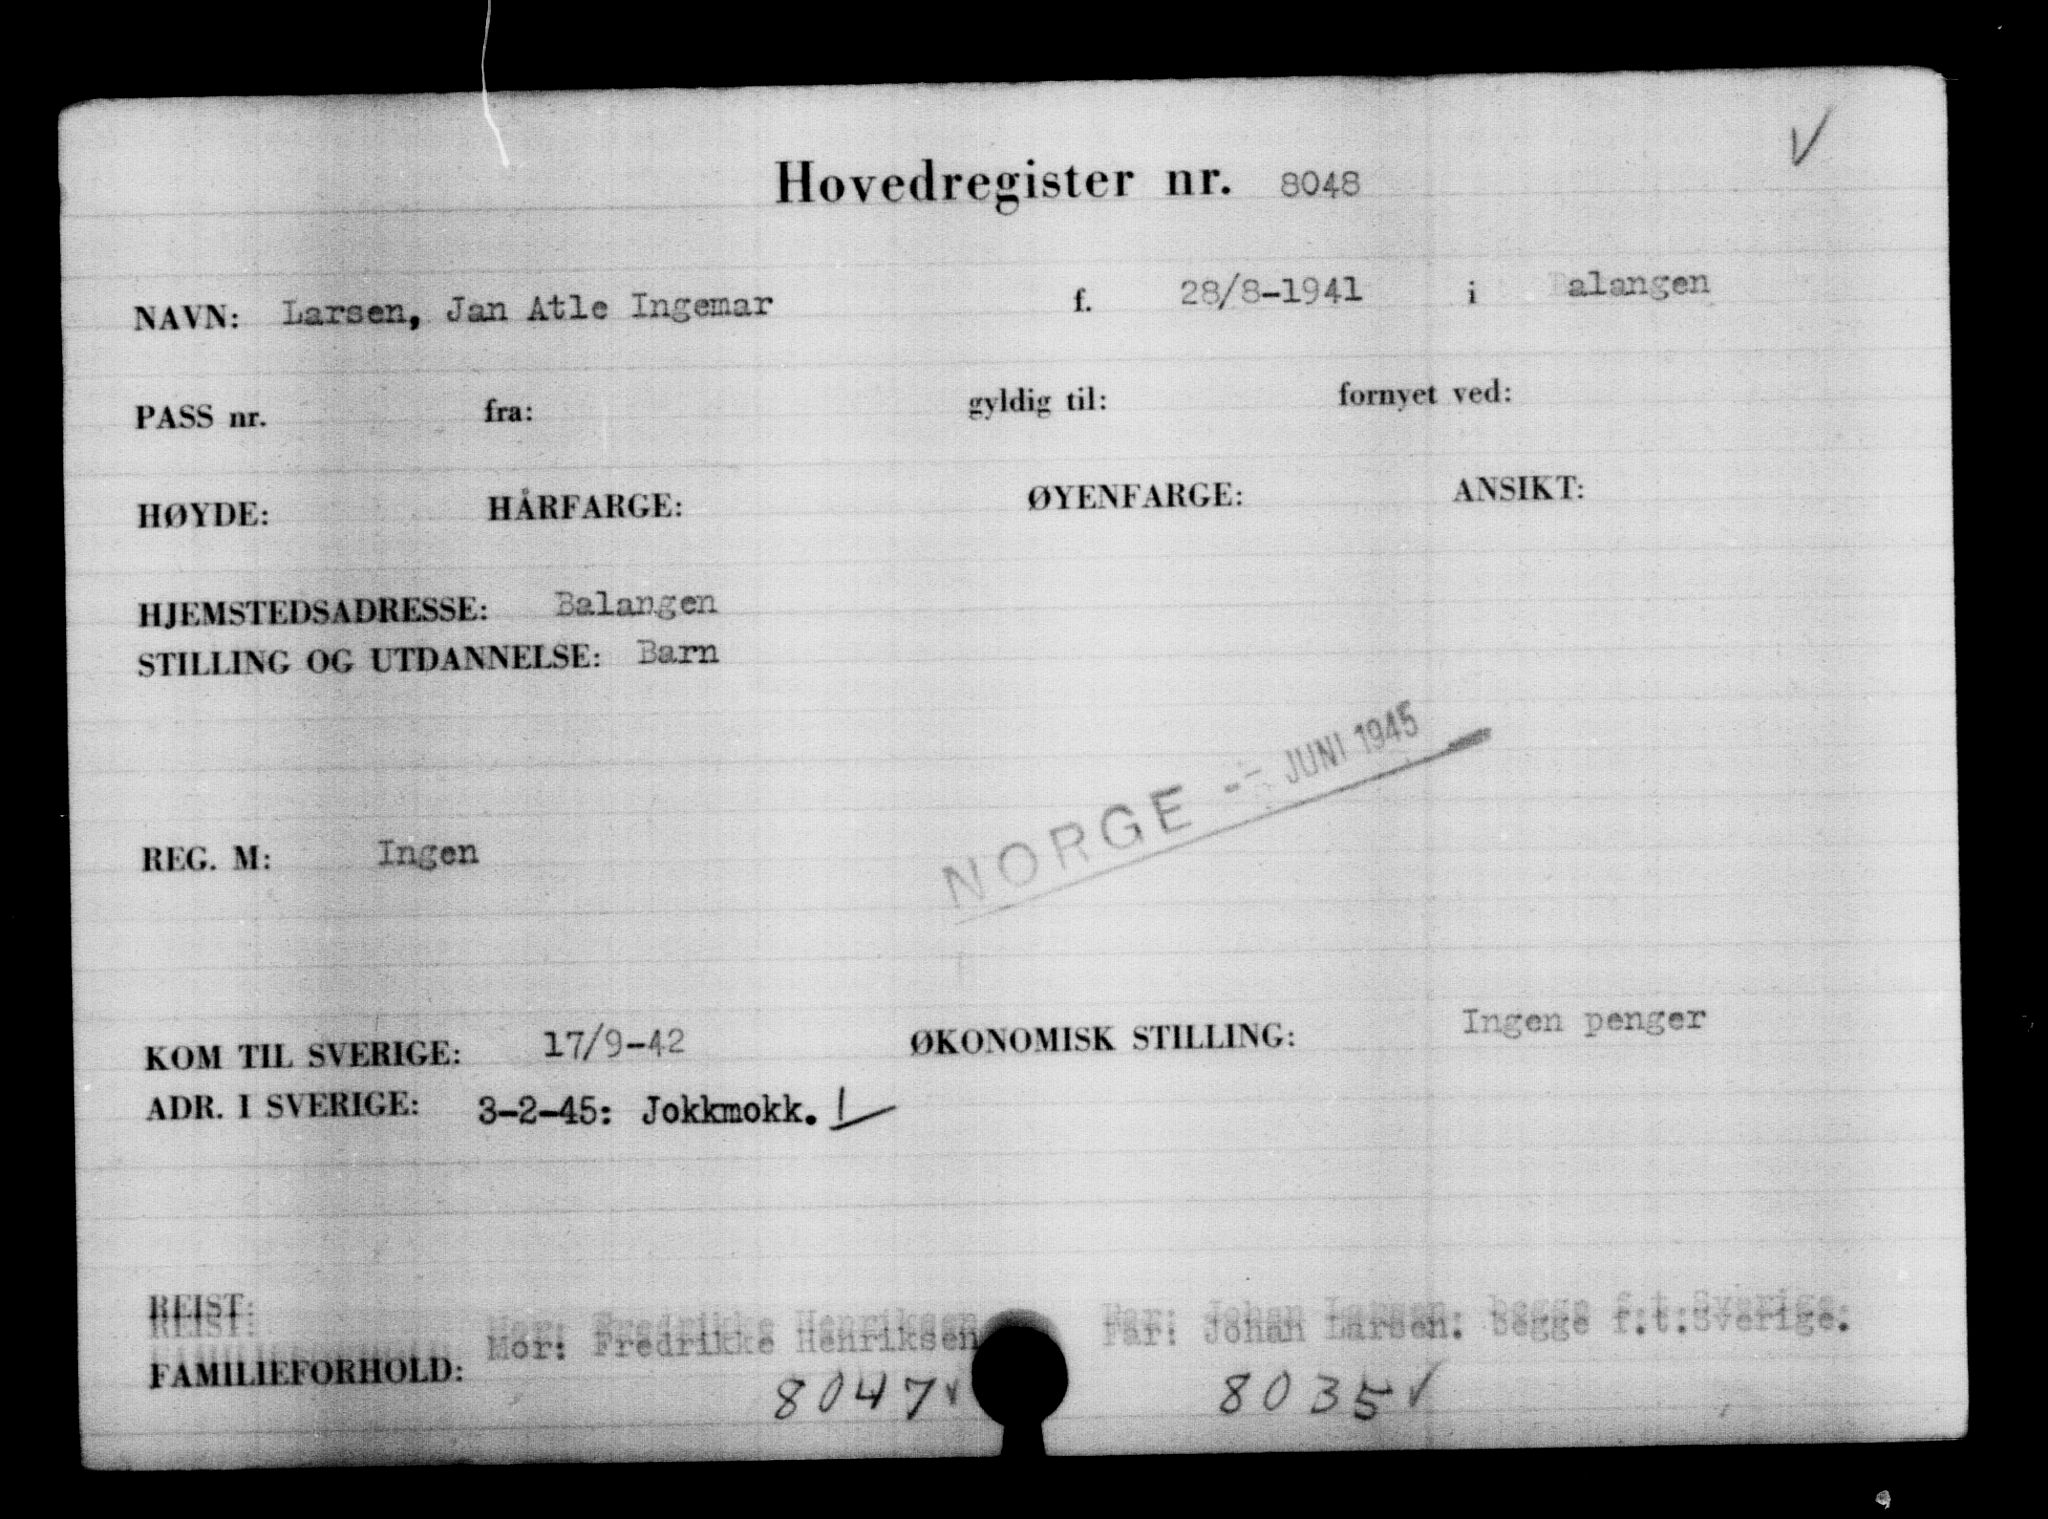 Hovedregister nr. 8048
NAVN: Larsen, Jan Atle Ingemar f. 28/8-1941 i Balangen
PASS nr. fra: gyldig til: fornyet ved:
HØYDE: HÅRFARGE: ØYENFARGE: ANSIKT:
HJEMSTEDSADRESSE: Balangen
STILLING OG UTDANNELSE: Barn
NORGE - JUNI 1945
REG. M: Ingen
KOM TIL SVERIGE: 17/9-42 ØKONOMISK STILLING: Ingen penger
ADR. I SVERIGE: 3-2-45: Jokkmokk.
REIST:
FAMILIEFORHOLD: Mor: Fredrikke Henriksen Far: Johan Larsen. begge f.t.Sverige.
8047 8035